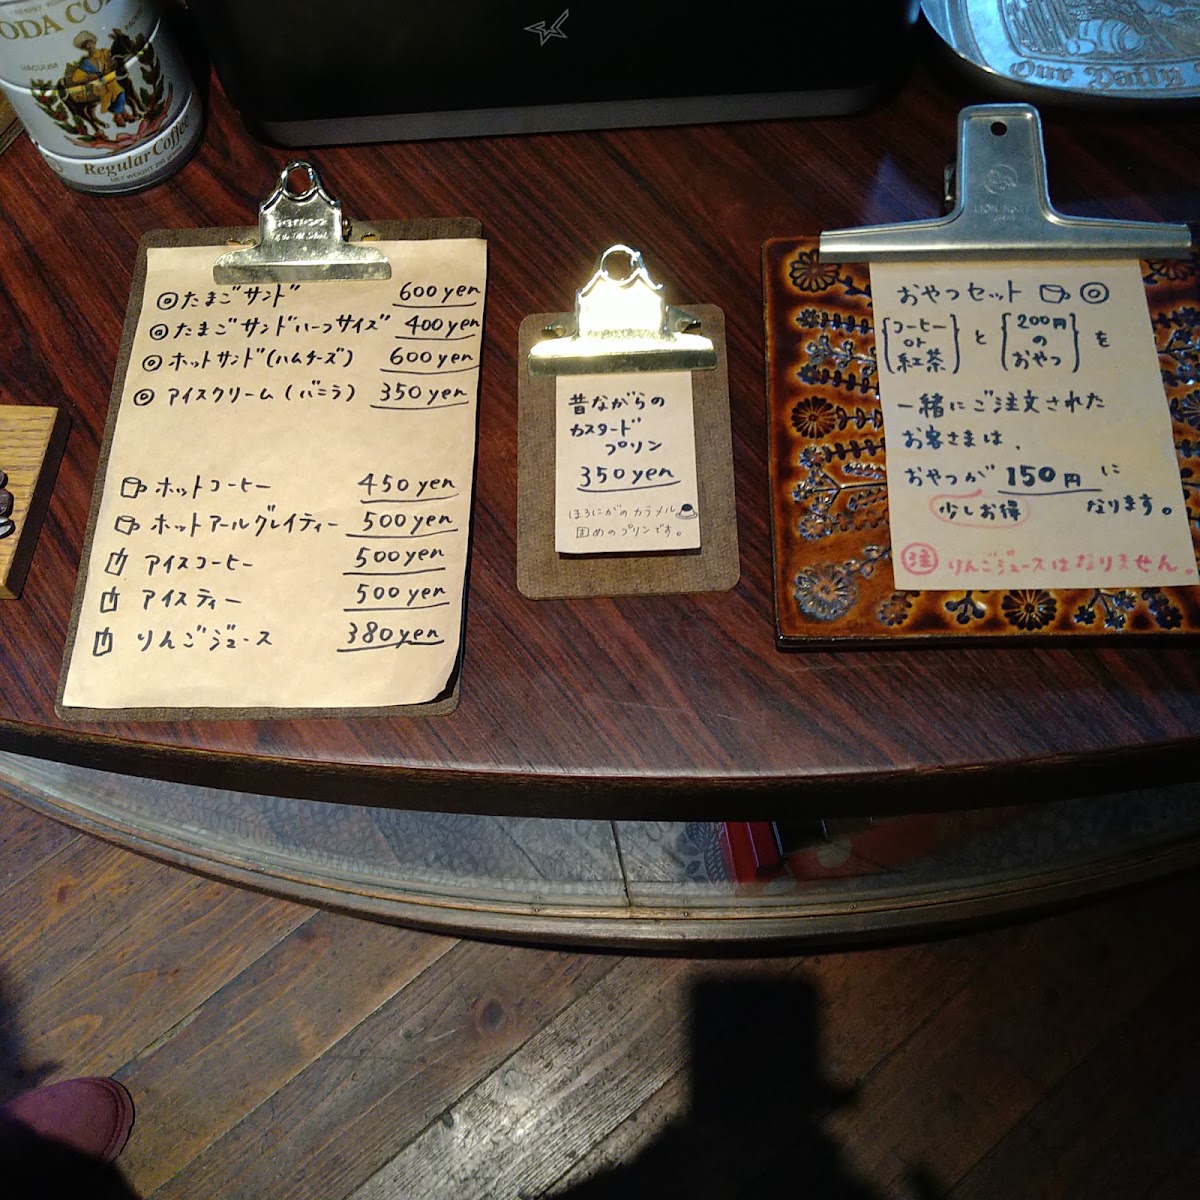 Regular Coffee
Our Daily
◎たまごサンド 600yen
◎たまごサンドハーフサイズ 400yen
◎ホットサンド(ハムチーズ) 600yen
◎アイスクリーム(バニラ) 350yen
ホットコーヒー 450yen
ホットアールグレイティー 500yen
アイスコーヒー 500yen
アイスティー 500yen
りんごジュース 380yen
昔ながらの
カスタード
プリン
350yen
ほろにがのカラメル
固めのプリンです。
おやつセット ◎
[コーヒー or 紅茶] と [200円のおやつ] を
一緒にご注文された
お客さまは、
おやつが 150円に
少しお得 なります。
注 りんごジュースはなりません。